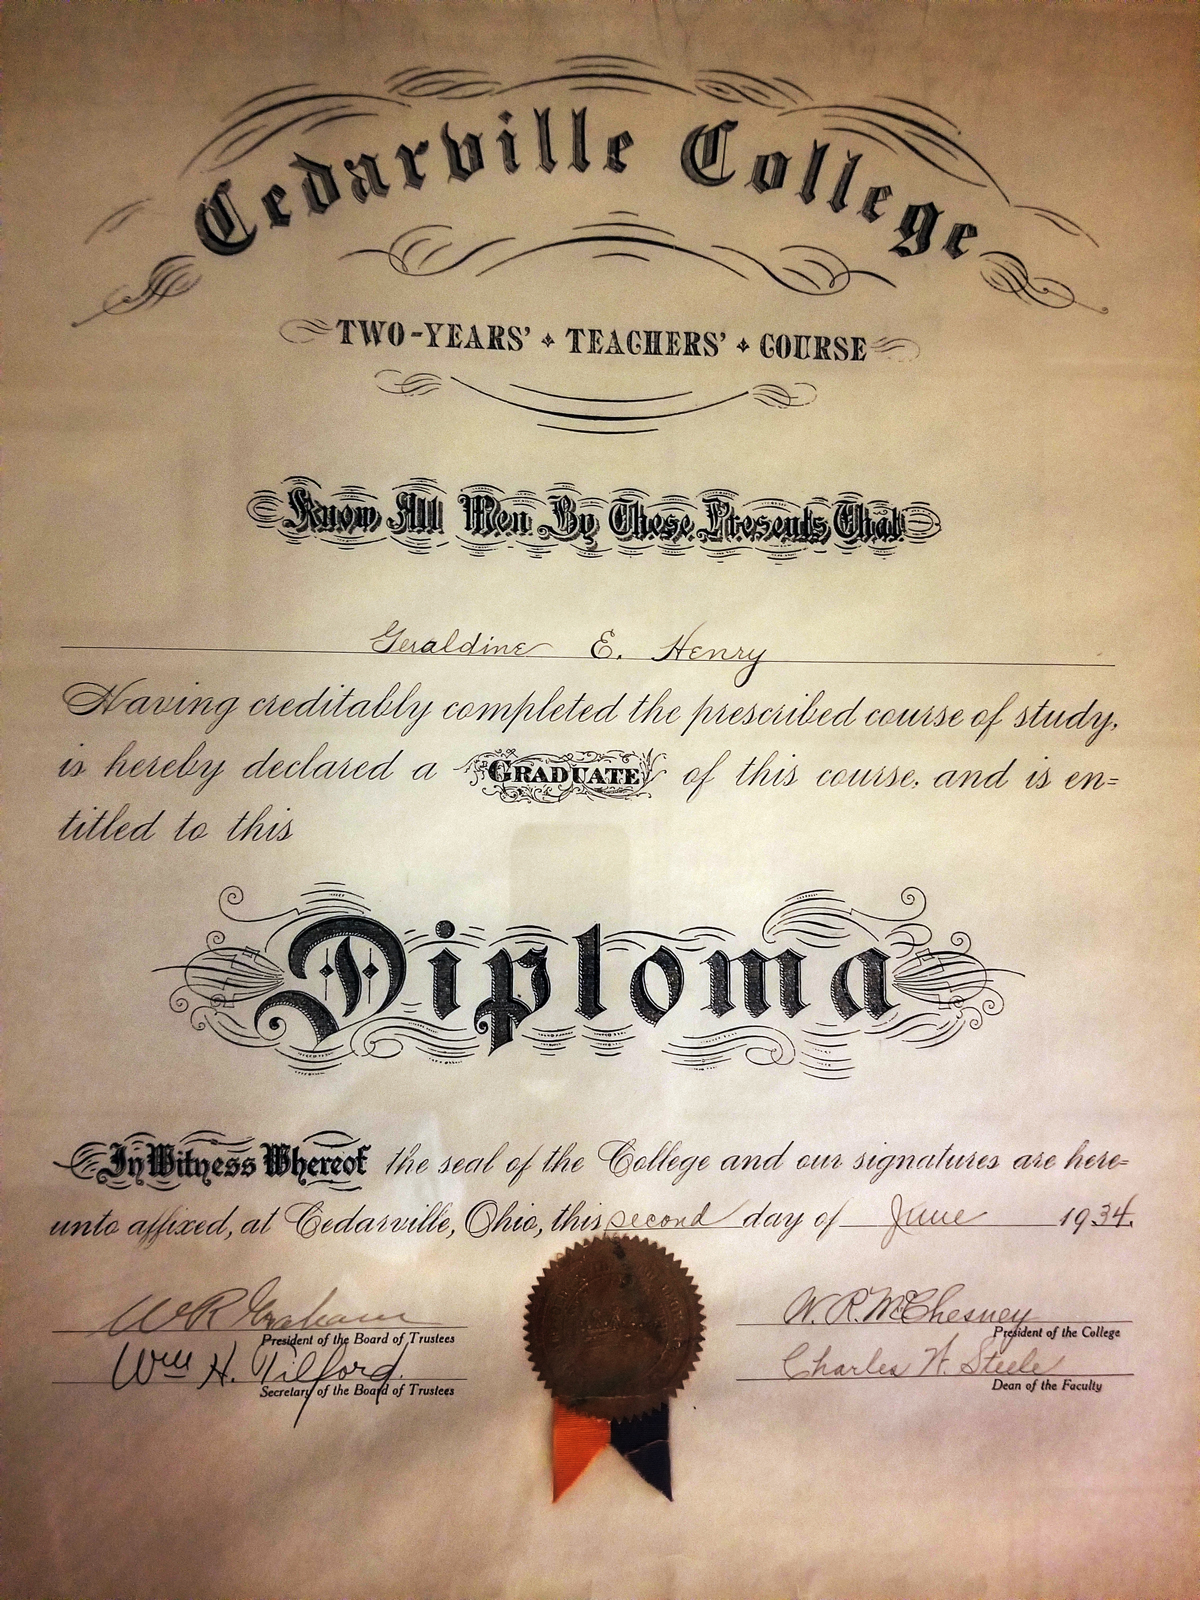 Cedarville College
TWO-YEARS' TEACHERS' COURSE
Know All Men By These Presents That
Geraldine E. Henry
Having creditably completed the prescribed course of study,
is hereby declared a GRADUATE of this course, and is en=
titled to this
Diploma
In Witness Whereof the seal of the College and our signatures are here=
unto affixed, at Cedarville, Ohio, this second day of June 1934.
W R Graham
President of the Board of Trustees
Wm H. Tilford.
Secretary of the Board of Trustees
W. R. McChesney
President of the College
Charles W. Steele
Dean of the Faculty